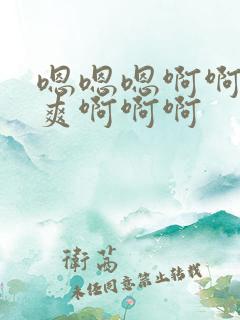 嗯嗯嗯啊啊
爽啊啊啊
衛萵
未经同意禁止转载